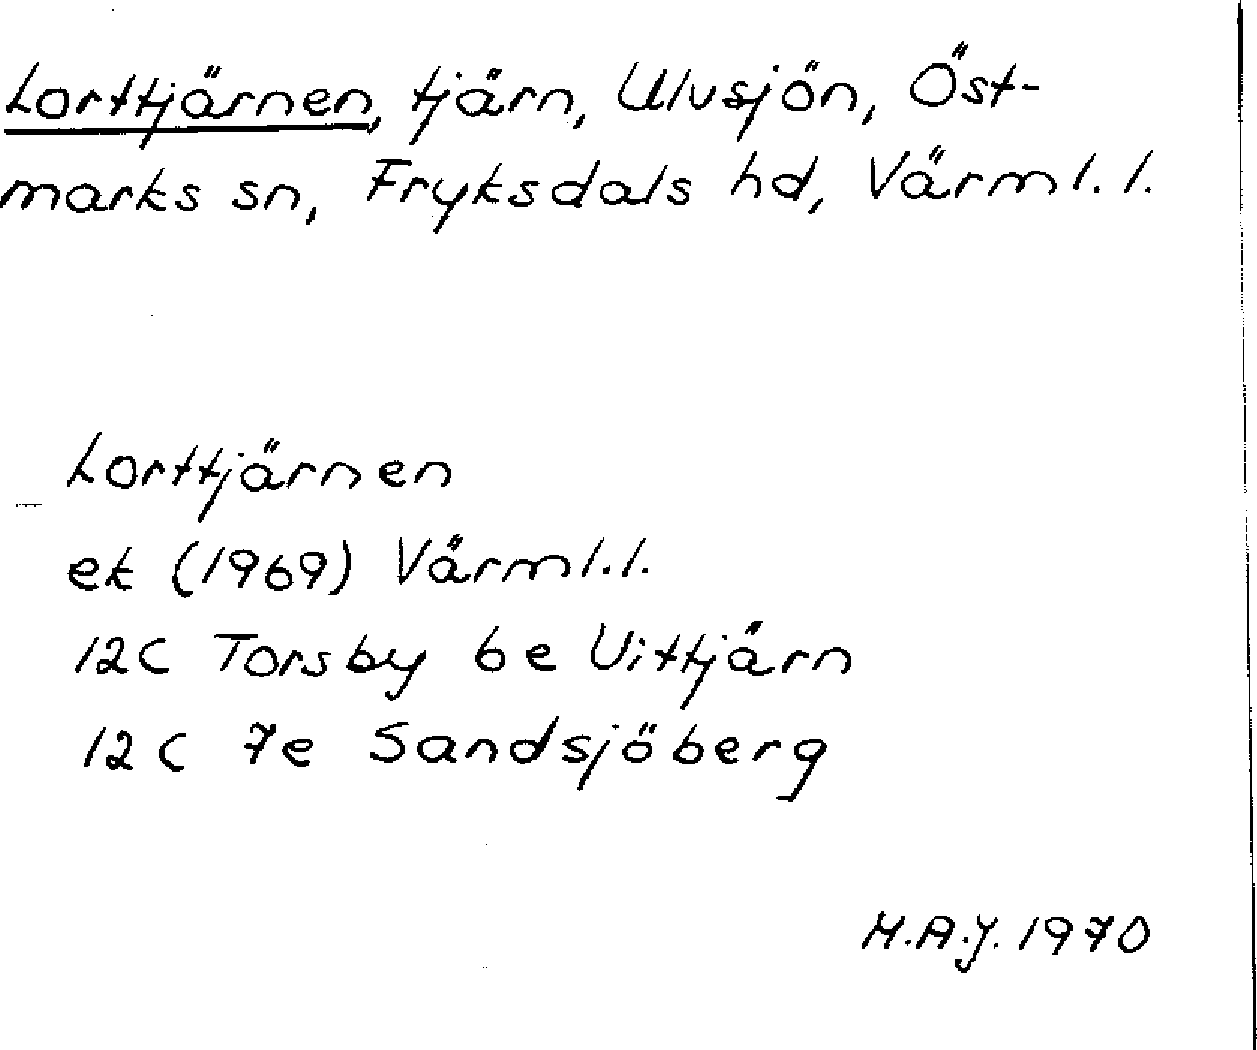 Lorttjärnen, tjärn, Ulvsjön, Öst-
marks sn, Fryksdals hd, Värml. l.
Lorttjärnen
ek (1969) Värml. l.
12C Torsby 6e Uittjärn
12C 7e Sandsjöberg
H.A.J. 1970